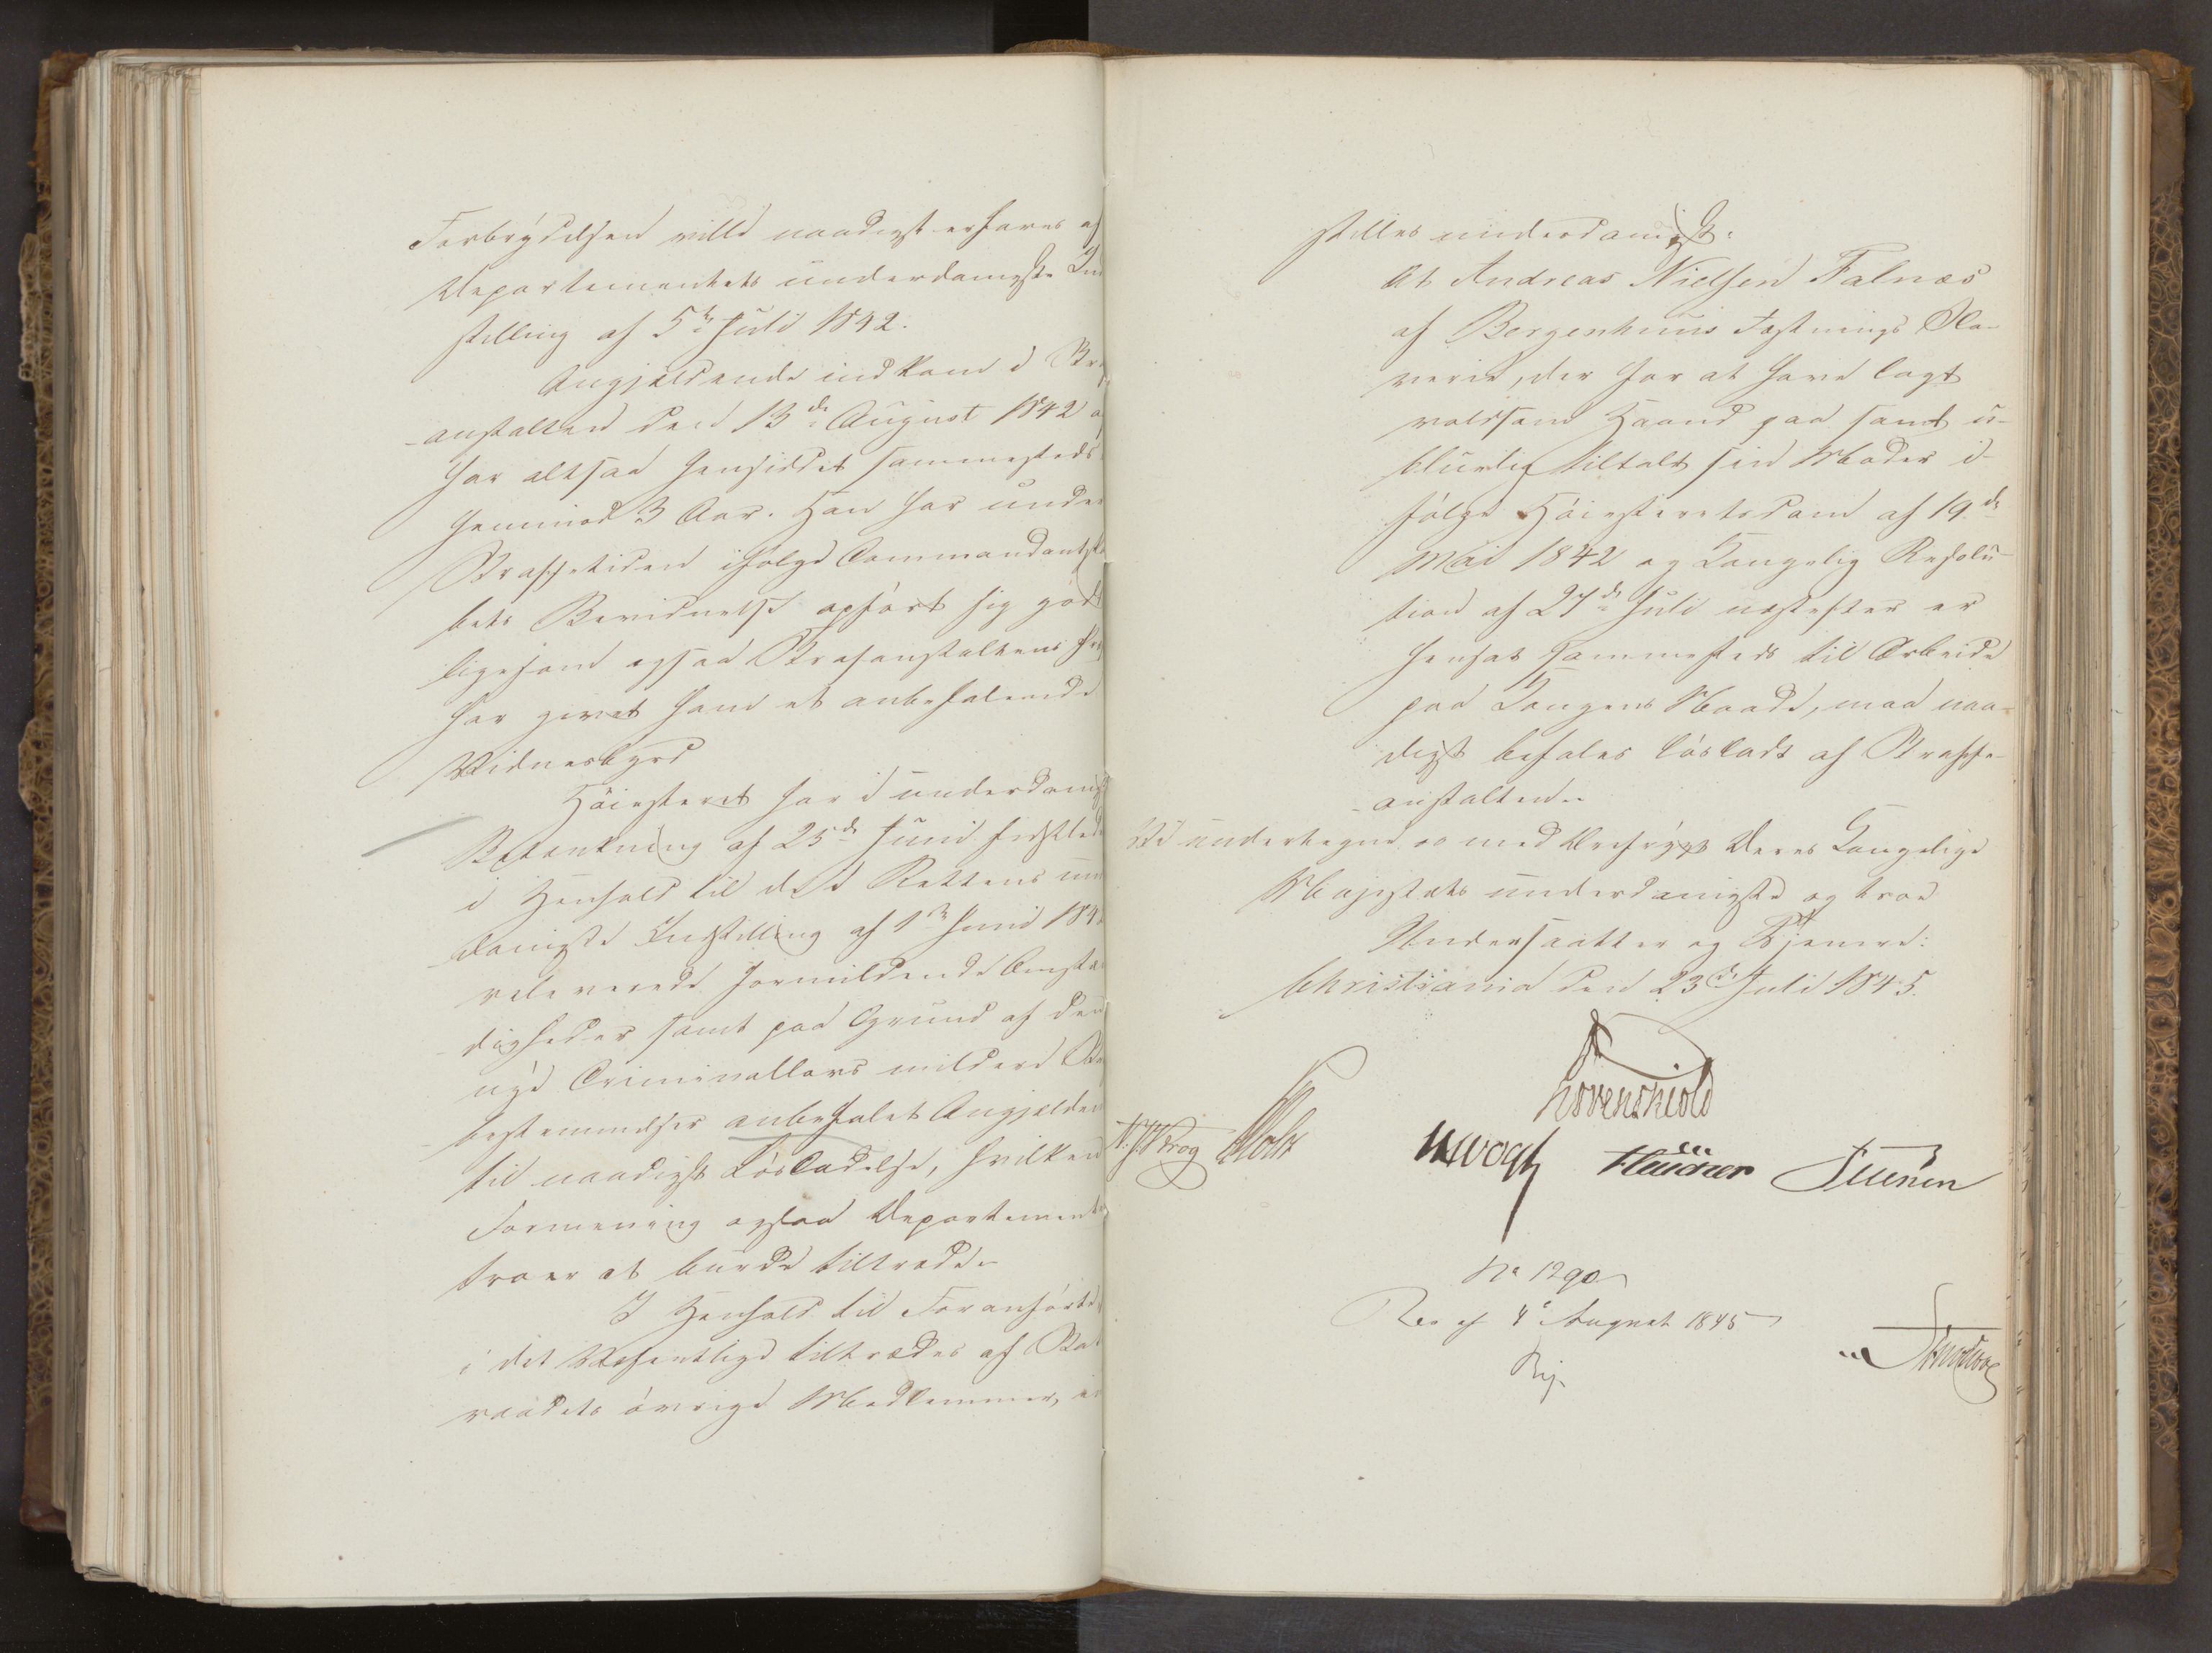 Forbrydelsen ville naadigst erfares af
Departementets underdanigste Ind
stilling af 5te Juli 1842.
Angjældende indkom i Straf
anstalten den 13de August 1842 og
har altsaa hensiddet sammesteds
henimod 3 Aar. Han har under
Straffetiden ifølge Commandantska
bets Bevidnelse opført sig godt
ligesom ogsaa Strafanstaltens Præst
har givet ham et anbefalende
Vidnesbyrd
Høiesteret har i underdanigst
Betænkning af 25de Juni sidstleden
i Henhold til de i Rettens under
danigste Indstilling af 1ste Juni 1842
releverede formildende Omstæn
digheder samt paa Grund af den
nye Criminallovs mildere Straf
bestemmelser anbefalet Angjældende
til naadigst Løsladelse, hvilken
Formening ogsaa Departementet
troer at burde tiltræde.
I Henhold til Foranførte,
i det Væsentlige tiltrædes af Stats
raadets øvrige Medlemmer, in
stilles underdanigst:
At Andreas Nielsen Falnæs
af Bergenhuus Fæstnings Sla-
verie, der for at have lagt
voldsom Haand paa samt u-
blueligt tiltalt sin Moder i-
følge Høiesteretsdom af 19de
Mai 1842 og Kongelig Resolu-
tion af 27de Juli næstefter er
hensat sammesteds til Arbeide
paa Kongens Naade, maa naa-
digst befales løsladt af Straffe-
anstalten.
Vi undertegne os med Ærefrygt Deres Kongelige
Majestæts underdanigste og troe
Undersaatter og Tjenere:
Christiania den 23de Juli 1845.
Løvenskiold
N. J. Krog Holst
Vogh
Sibbern
No 1290
Res af 4de August 1845